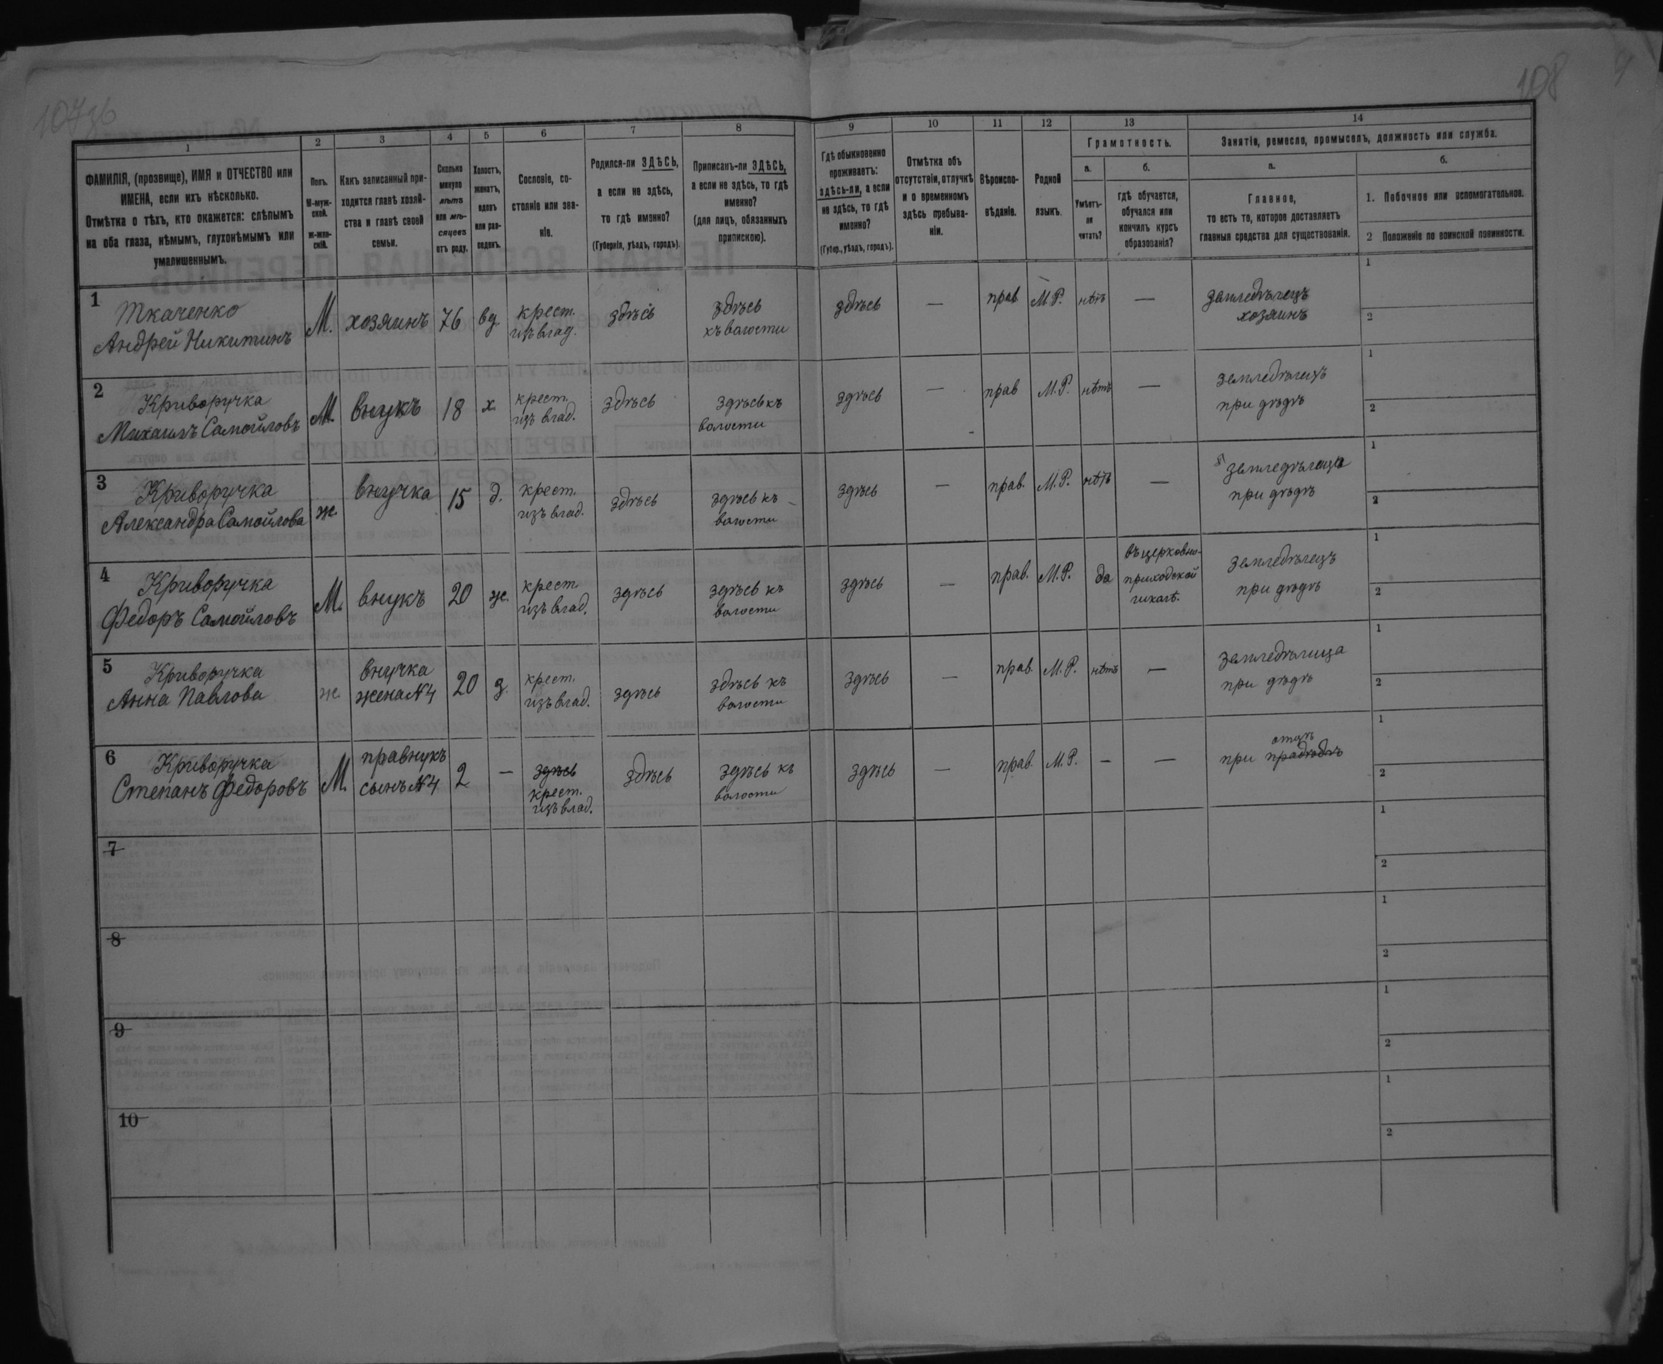 107 зв
108
1
2
3
4
5
6
7
8
9
10
11
12
13
14
ФАМИЛІЯ, (прозвище), ИМЯ и ОТЧЕСТВО или
ИМЕНА, если ихъ нѣсколько.
Отмѣтка о тѣхъ, кто окажется: слѣпымъ
на оба глаза, нѣмымъ, глухонѣмымъ или
умалишеннымъ.
Полъ.
М-муж-
ской.
Ж-жен-
скій.
Какъ записанный при-
ходится главѣ хозяй-
ства и главѣ своей
семьи.
Сколько
минуло
лѣтъ
или мѣ-
сяцевъ
отъ роду.
Холостъ,
женатъ,
вдовъ
или раз-
веденъ.
Сословіе, со-
стояніе или зва-
ніе.
Родился-ли ЗДѢСЬ,
а если не здѣсь,
то гдѣ именно?
(Губернія, уѣздъ, городъ).
Приписанъ-ли ЗДѢСЬ,
а если не здѣсь, то гдѣ
именно?
(для лицъ, обязанныхъ
припискою).
Гдѣ обыкновенно
проживаетъ:
здѣсь-ли, а если
не здѣсь, то гдѣ
именно?
(Губер., уѣздъ, городъ).
Отмѣтка объ
отсутствіи, отлучкѣ
и о временномъ
здѣсь пребыва-
ніи.
Вѣроиспо-
вѣданіе.
Родной
языкъ.
Грамотность.
а.
Умѣетъ-
ли
читать?
б.
гдѣ обучается,
обучался или
кончилъ курсъ
образованія?
Занятіе, ремесло, промыселъ, должность или служба.
а.
Главное,
то есть то, которое доставляетъ
главныя средства для существованія.
б.
1. Побочное или вспомогательное.
2 Положеніе по воинской повинности.
1
Ткаченко
Андрей Никитинъ
М.
хозяинъ
76
вд
крест.
изъ влад.
здѣсь
здѣсь
къ волости
здѣсь
—
прав
М.Р.
нѣтъ
—
земледѣлецъ
хозяинъ
1
2
2
Криворучка
Михаилъ Самойловъ
М.
внукъ
18
х
крест.
изъ влад.
здѣсь
здѣсь къ
волости
здѣсь
—
прав
М.Р.
нѣтъ
—
земледѣлецъ
при дѣдѣ
1
2
3
Криворучка
Александра Самойлова
ж.
внучка
15
д.
крест.
изъ влад.
здѣсь
здѣсь къ
волости
здѣсь
—
прав.
М.Р.
нѣтъ
—
земледѣлица
при дѣдѣ
1
2
4
Криворучка
Федоръ Самойловъ
М.
внукъ
20
ж.
крест
изъ влад.
здѣсь
здѣсь къ
волости
здѣсь
—
прав.
М.Р.
да
въ церковно-
приходской
школѣ.
земледѣлецъ
при дѣдѣ
1
2
5
Криворучка
Анна Павлова
ж
внучка
жена №4
20
з.
крест.
изъ влад.
здѣсь
здѣсь къ
волости
здѣсь
—
прав.
М.Р.
нѣтъ
—
земледѣлица
при дѣдѣ
1
2
6
Криворучка
Степанъ Федоровъ
М.
правнукъ
сынъ №4
2
—
здѣсь
крест.
изъ влад.
здѣсь
здѣсь къ
волости
здѣсь
—
прав.
М.Р.
—
—
отцѣ
при прадѣдѣ
1
2
7
1
2
8
1
2
9
1
2
10
1
2